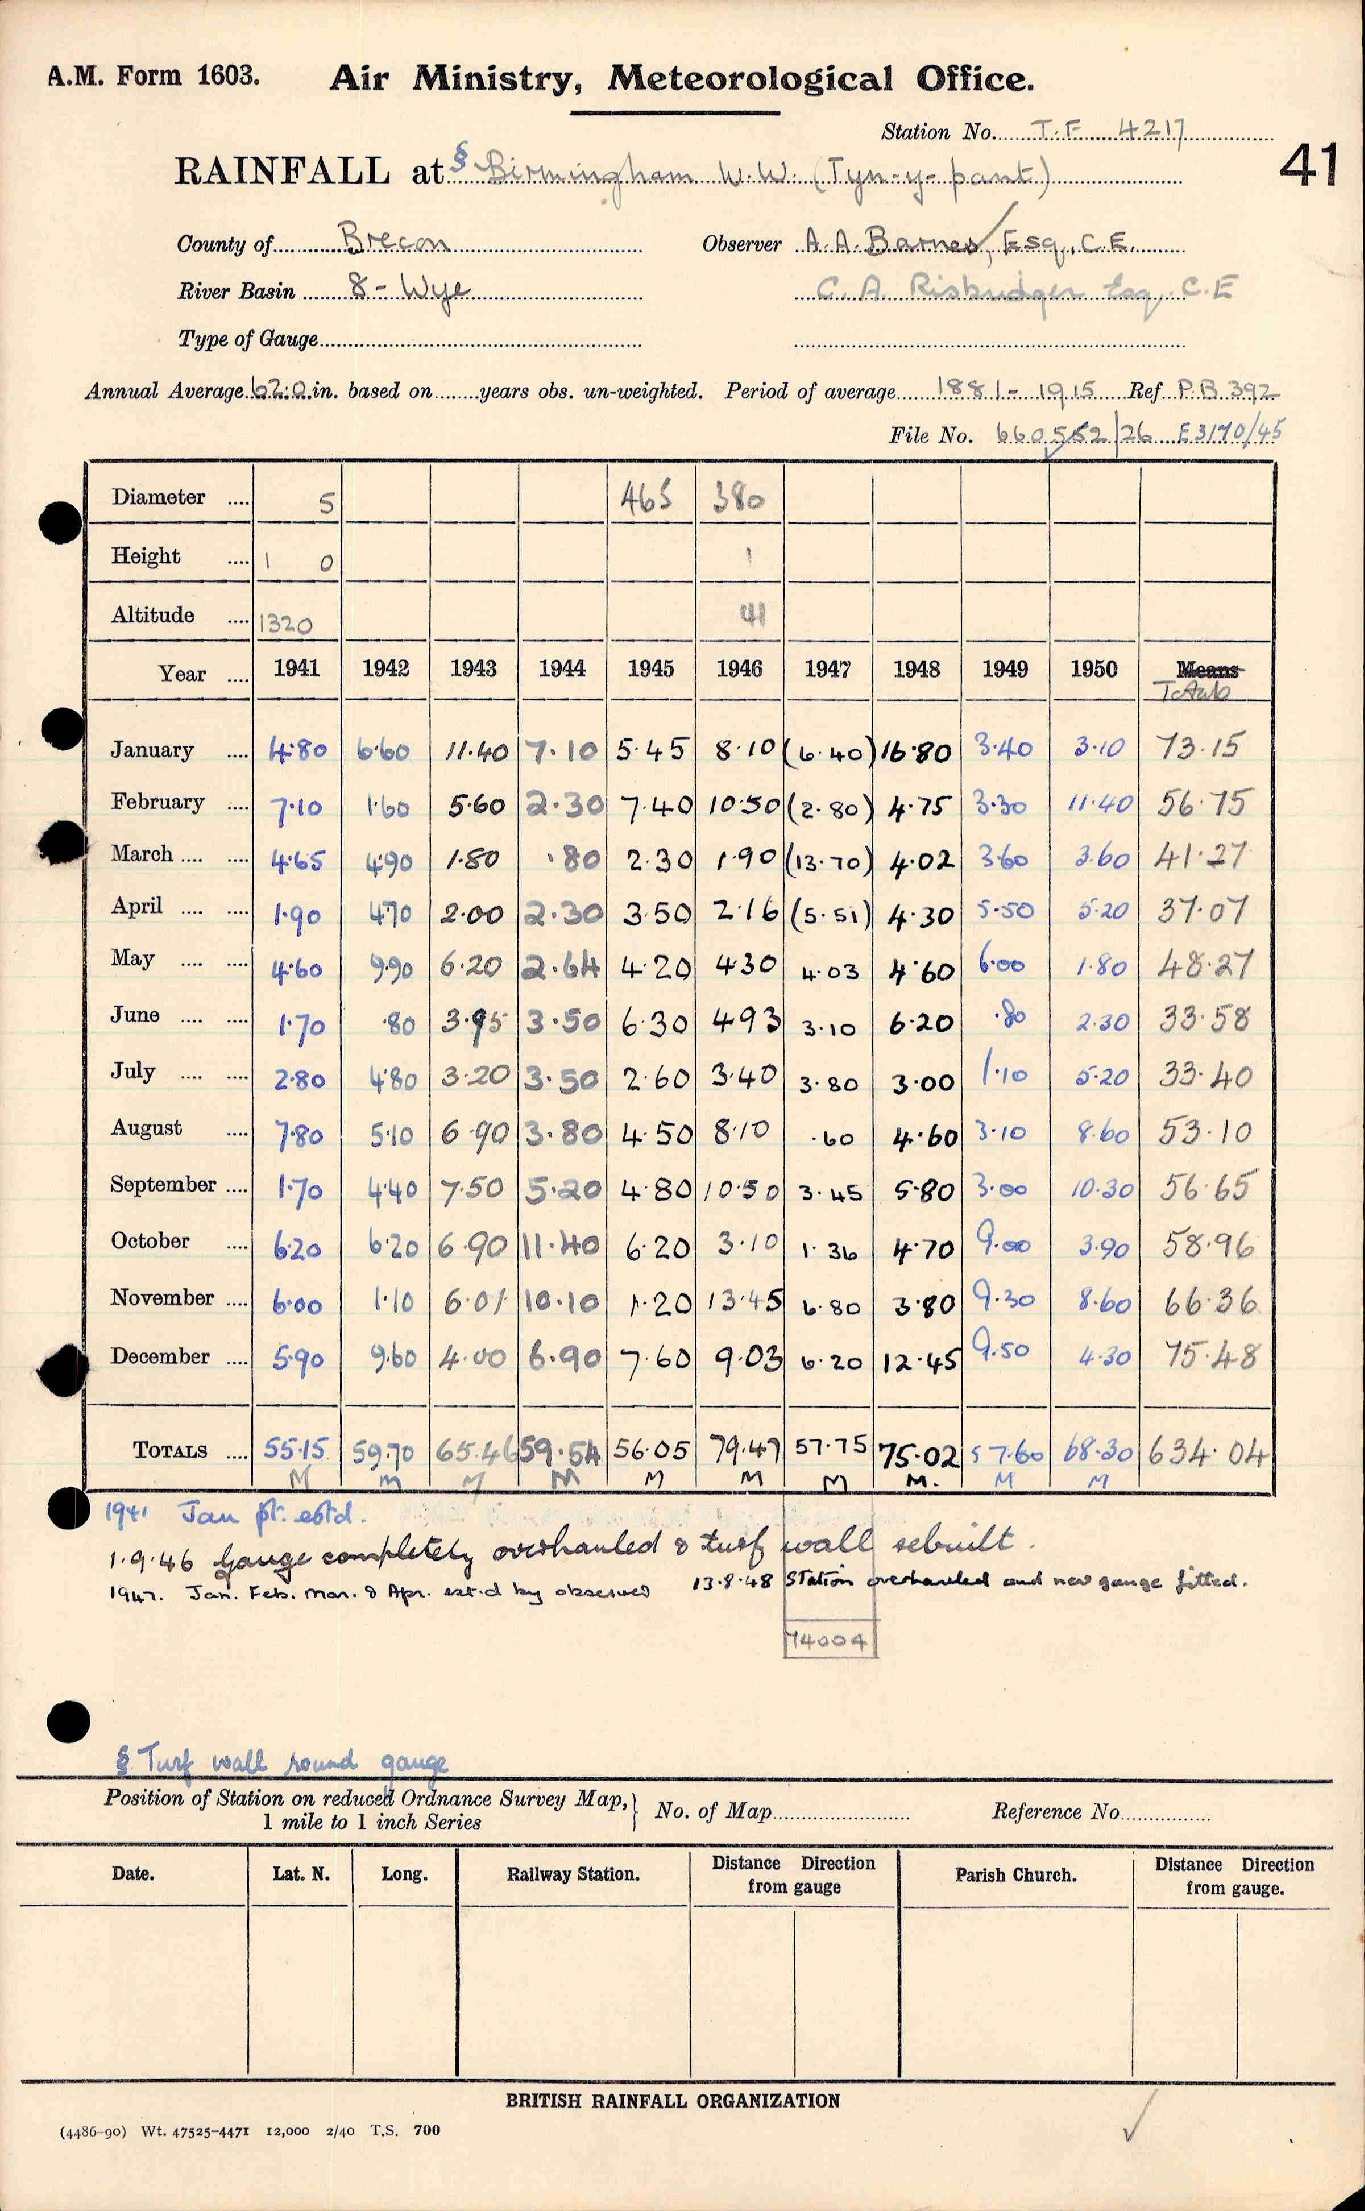 A.M. Form 1603. Air Ministry, Meteorological Office.
Station No. T.F 4217
41
RAINFALL at § Birmingham W.W. (Tyn-y-pant)
County of Brecon Observer A.A. Barnes, Esq., C.E.
River Basin 8 - Wye C. A. Risbridger Esq, C.E
Type of Gauge
Annual Average 62.0 in. based on years obs. un-weighted. Period of average 1881-1915 Ref P.B 392
File No. 660552/26 E3170/45
Diameter .... 5 465 380
Height .... 1 0 1
Altitude .... 1320 41
Year .... 1941 1942 1943 1944 1945 1946 1947 1948 1949 1950 Means
Totals
January .... 4.80 6.60 11.40 7.10 5.45 8.10 (6.40) 16.80 3.40 3.10 73.15
February .... 7.10 1.60 5.60 2.30 7.40 10.50 (2.80) 4.75 3.30 11.40 56.75
March .... .... 4.65 4.90 1.80 .80 2.30 1.90 (13.70) 4.02 3.60 3.60 41.27
April .... .... 1.90 4.70 2.00 2.30 3.50 2.16 (5.51) 4.30 5.50 5.20 37.07
May .... .... 4.60 9.90 6.20 2.64 4.20 4.30 4.03 4.60 6.00 1.80 48.27
June .... .... 1.70 .80 3.95 3.50 6.30 4.93 3.10 6.20 .80 2.30 33.58
July .... .... 2.80 4.80 3.20 3.50 2.60 3.40 3.80 3.00 1.10 5.20 33.40
August .... 7.80 5.10 6.90 3.80 4.50 8.10 .60 4.60 3.10 8.60 53.10
September .... 1.70 4.40 7.50 5.20 4.80 10.50 3.45 5.80 3.00 10.30 56.65
October .... 6.20 6.20 6.90 11.40 6.20 3.10 1.36 4.70 9.00 3.90 58.96
November .... 6.00 1.10 6.01 10.10 1.20 13.45 6.80 3.80 9.30 8.60 66.36
December .... 5.90 9.60 4.00 6.90 7.60 9.03 6.20 12.45 9.50 4.30 75.48
TOTALS .... 55.15 59.70 65.46 59.54 56.05 79.47 57.75 75.02 57.60 68.30 634.04
M M M M M M M M. M M
1941 Jan pt. estd.
1.9.46 Gauge completely overhauled & turf wall rebuilt.
1947. Jan. Feb. Mar. & Apr. est.d by observer 13.8.48 Station overhauled and new gauge fitted.
74004
§ Turf wall round gauge
Position of Station on reduced Ordnance Survey Map, 1 mile to 1 inch Series } No. of Map Reference No.
Date. Lat. N. Long. Railway Station. Distance Direction from gauge Parish Church. Distance Direction from gauge.
BRITISH RAINFALL ORGANIZATION
(4486-90) Wt. 47525-4471 12,000 2/40 T.S. 700